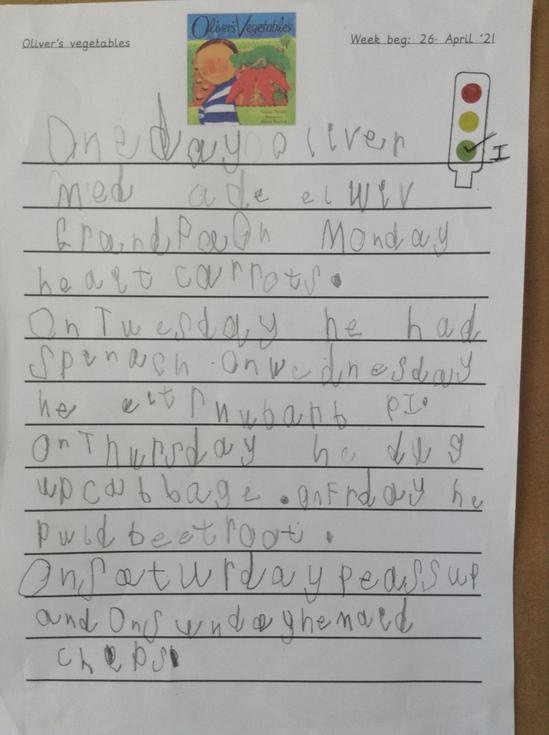 Oliver's vegetables
Oliver's Vegetables
Week beg: 26- April '21
One day oliver
med a de el wiv
GrandPa On Monday
he aet carrots.
On Tuesday he had
spenach. On wednesday
he eit rhubarb PI.
On Thursday he dug
up cabbage. On Frday he
puld beetroot.
On Saturday peas sup
and On Sunday he naed
cheps
I